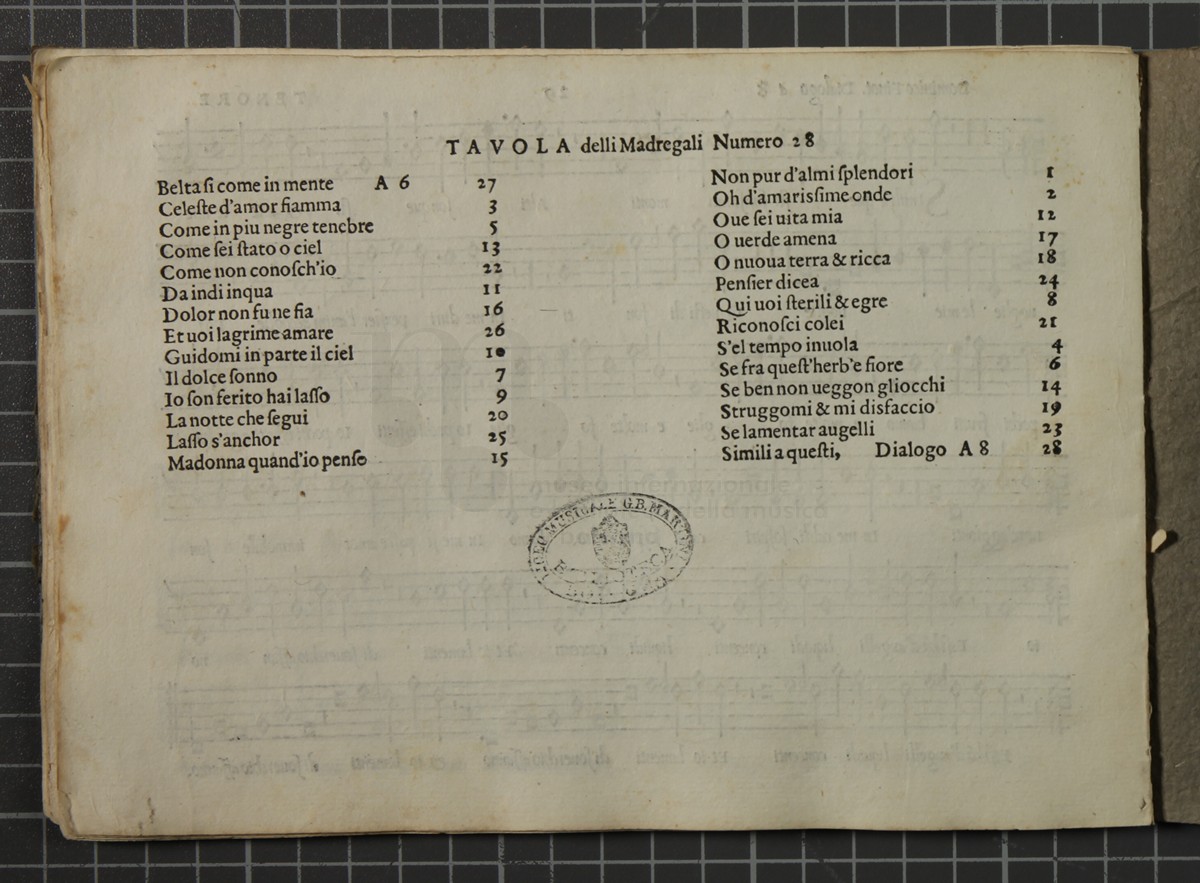 TAVOLA delli Madregali Numero 28
Belta ſi come in mente A 6 27
Celeſte d'amor fiamma 3
Come in piu negre tenebre 5
Come ſei ſtato o ciel 13
Come non conoſch'io 22
Da indi inqua 11
Dolor non fu ne fia 16
Et uoi lagrime amare 26
Guidomi in parte il ciel 10
Il dolce ſonno 7
Io ſon ferito hai laſſo 9
La notte che ſegui 20
Laſſo s'anchor 25
Madonna quand'io penſo 15
Non pur d'almi ſplendori 1
Oh d'amariſſime onde 2
Oue ſei uita mia 12
O uerde amena 17
O nuoua terra & ricca 18
Penſier dicea 24
Qui uoi ſterili & egre 8
Riconoſci colei 21
S'el tempo inuola 4
Se fra queſt'herb'e fiore 6
Se ben non ueggon gliocchi 14
Struggomi & mi disfaccio 19
Se lamentar augelli 23
Simili a queſti, Dialogo A 8 28
LICEO MUSICALE G.B. MARTINI
museo internazionale
della musica
TENORE